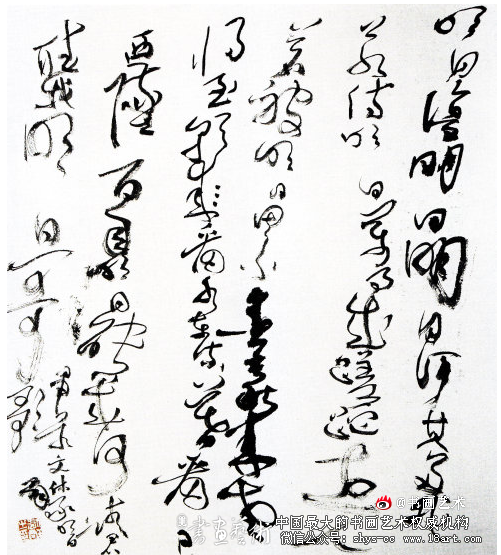 明日復明日明日何其多
待明日萬事成蹉跎世
若被明日累春去秋來老
將至朝看水東流暮看日
西墜百年明日能幾何請君
聽我明日歌
文林
@书画艺术
书画艺术
中国最大的书画艺术权威机构
微信公众号：shys-cc www.18art.com